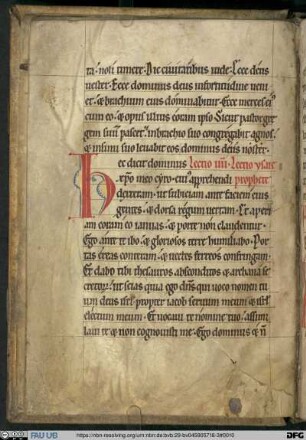 ta. noli timere. Dic civitatibus iude. Ecce deus
vester. Ecce dominus deus in fortitudine veni
et. & brachium eius dominabitur. Ecce merces ei
cum eo. & opus illius coram ipso. Sicut pastor gre
gem suum pascet. in brachio suo congregabit agnos.
& in sinu suo levabit eos dominus deus noster.
Hec dicit dominus Lectio ysaie
xpo meo cyro. cuius apprehendi prophete
dexteram. ut subiciam ante faciem eius
gentes. & dorsa regum vertam. Et aperi
am coram eo ianuas. & porte non claudentur.
Ego ante te ibo. & gloriosos terre humiliabo. Por
tas ereas conteram. & vectes ferreos confringam.
Et dabo tibi thesauros absconditos & archana se
cretorum. ut scias quia ego dns qui voco nomen tu
um deus isrl propter iacob servum meum & isrl
electum meum. Et vocavi te nomine tuo. assimi
lavi te & non cognovisti me. Ego dominus & n
FAU UB
DFG